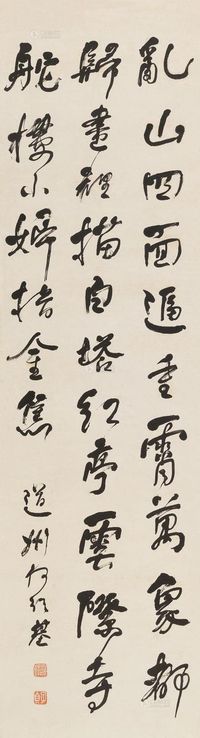 亂山四面逼重霄萬象都
歸畫裡描白塔紅亭雲際寺
舵樓小婦指金焦
道州何紹基